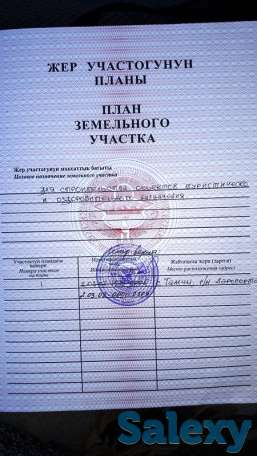 ЖЕР УЧАСТОГУНУН
ПЛАНЫ
ПЛАН
ЗЕМЕЛЬНОГО
УЧАСТКА
Жер участогунун максаттык багыты
Целевое назначение земельного участка
для строительства объектов туристическо
и оздоровительного назначения
Участоктун пландагы
номери
Номера участков
на плане
Жайгашкан жери (дареги)
Место расположения (адрес)
Тамчы, р/н Аэропорта
Salexy